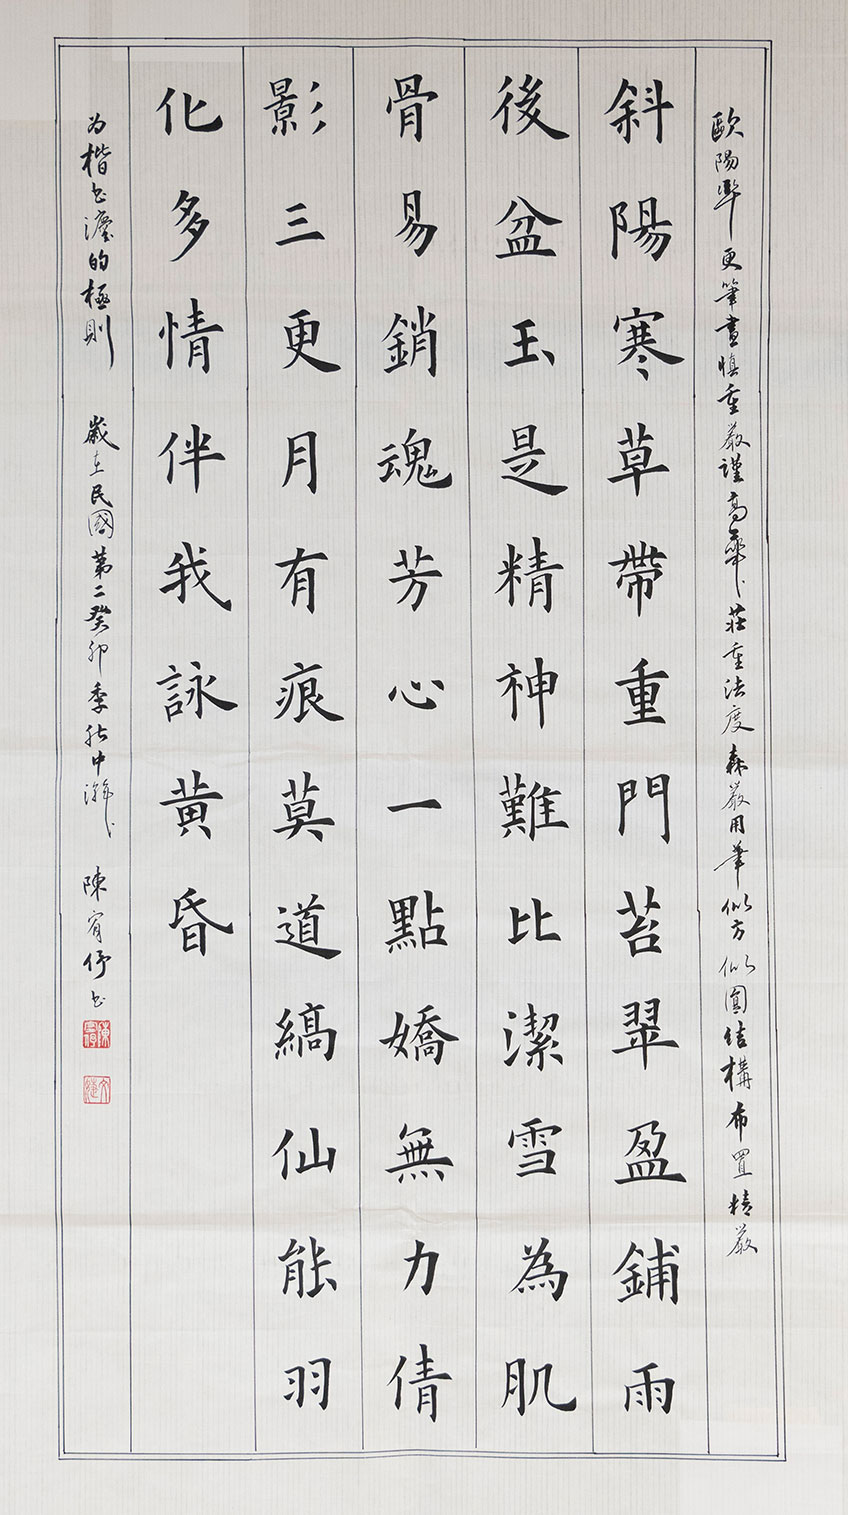 歐陽率更筆畫慎重嚴謹高華、莊重法度森嚴用筆似方似圓結構布置精嚴
斜陽寒草帶重門苔翠盈鋪雨
後盆玉是精神難比潔雪為肌
骨易銷魂芳心一點嬌無力倩
影三更月有痕莫道縞仙能羽
化多情伴我詠黃昏
为楷书灋的極則 歲在民國第二癸卯季秋中澣、陳宥伃书